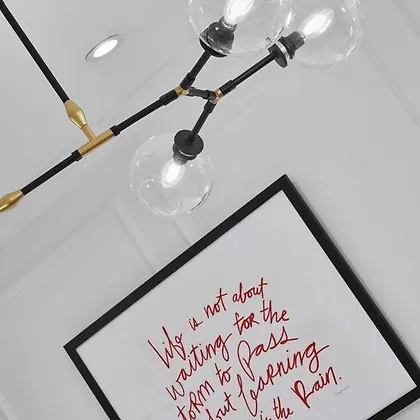 Life is not about
waiting for the
to Pass
learning
the Rain.